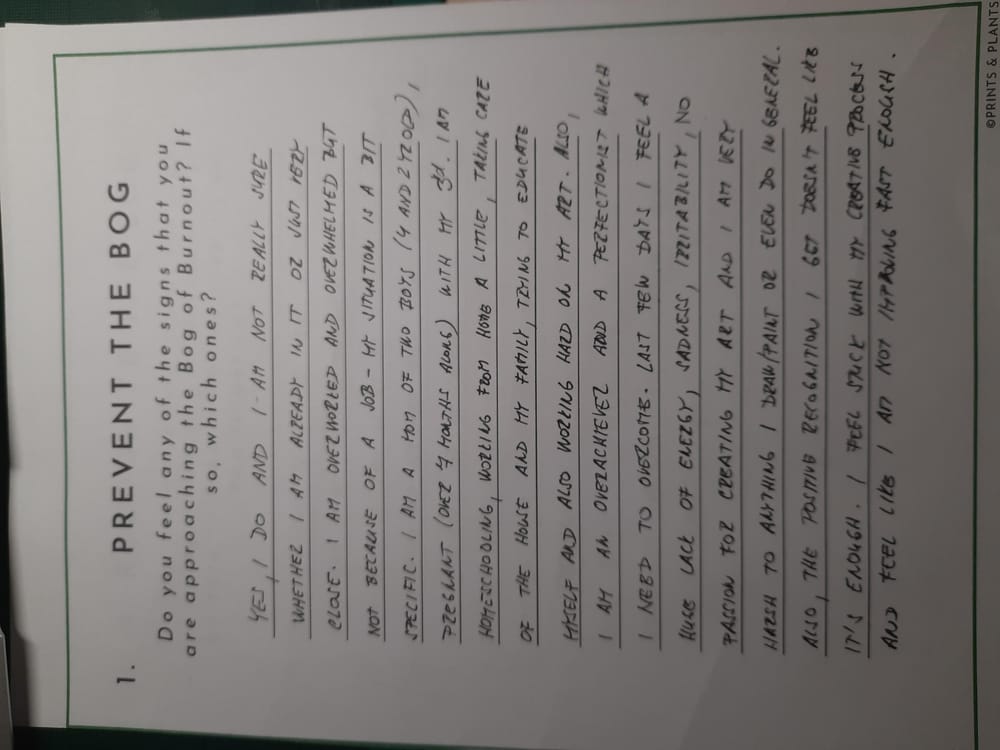 1. PREVENT THE BOG
Do you feel any of the signs that you
are approaching the Bog of Burnout? If
so, which ones?
YES, I DO AND I AM NOT REALLY SURE
WHETHER I AM ALREADY IN IT OR JUST VERY
CLOSE. I AM OVERWORKED AND OVERWHELMED BUT
NOT BECAUSE OF A JOB - MY SITUATION IS A BIT
SPECIFIC. I AM A MOM OF TWO BOYS (4 AND 2 YZOLD),
PREGNANT (OVER 4 MONTHS ALONG) WITH MY 3d. I AM
HOMESCHOOLING, WORKING FROM HOME A LITTLE, TAKING CARE
OF THE HOUSE AND MY FAMILY, TRYING TO EDUCATE
MYSELF AND ALSO WORKING HARD ON MY ART. ALSO,
I AM AN OVERACHIEVER AND A PERFECTIONIST WHICH
I NEED TO OVERCOME. LAST FEW DAYS I FEEL A
HUGE LACK OF ENERGY, SADNESS, IRRITABILITY, NO
PASSION FOR CREATING MY ART AND I AM VERY
HARSH TO ANYTHING I DRAW/PAINT OR EVEN DO IN GENERAL.
ALSO, THE POSITIVE RECOGNITION I GET DOESN'T FEEL LIKE
IT'S ENOUGH. I FEEL STUCK WITH MY CREATIVE PROCESS
AND FEEL LIKE I AM NOT IMPROVING FAST ENOUGH.
©PRINTS & PLANTS